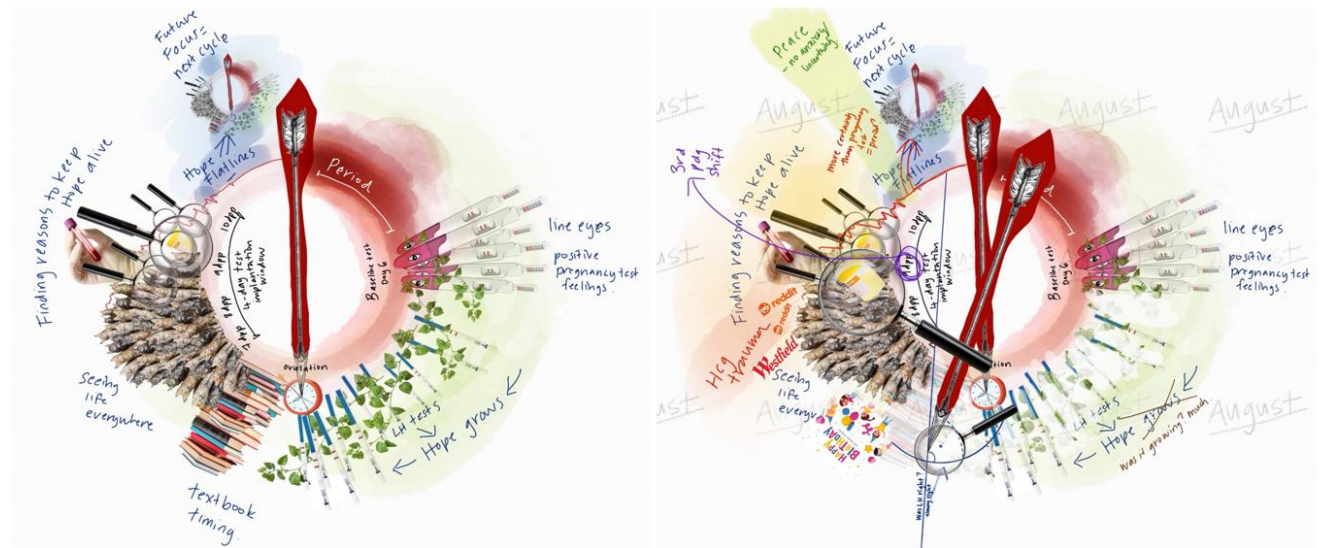 Future
Focus=
next cycle
Hope
Flatlines
Period
Finding reasons to keep
Hope alive
10dpp
9dpp
8dpp
7dpp
4-day test
implantation
window
Baseline test
Day 6
line eyes
positive
pregnancy test
feelings.
ovulation
LH tests
Hope grows
Seeing
life
everywhere
textbook
timing.
Peace
- no anxiety/
uncertainty
Future
Focus=
next cycle
August
August
August
August
more certainty
than pregnancy
test
= period
3rd
Pdg
shift
Hope
Flatlines
Finding reasons to keep
Hope alive
10dpp
9dpp
8dpp
4-day test
implantation
window
Baseline test
Day 6
line eyes
positive
pregnancy test
feelings.
reddit
reddit
Westfield
Hcg
trauma
Seeing
life
HAPPY
BIRTHDAY
LH tests
Hope grows
was it growing? much
August
August
was LH right?
timing right